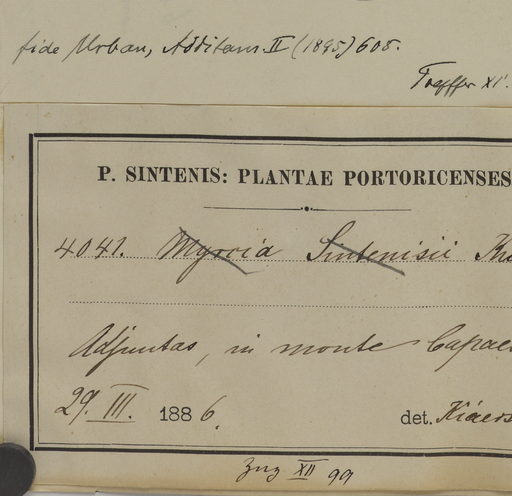 fide Urban, Additam. II (1895) 608.
Treffer XI.
P. SINTENIS: PLANTAE PORTORICENSES
4041. Myrcia Sintenisii
Adjuntas, in monte
29. III. 1886.
det. Kiaers
XII 99